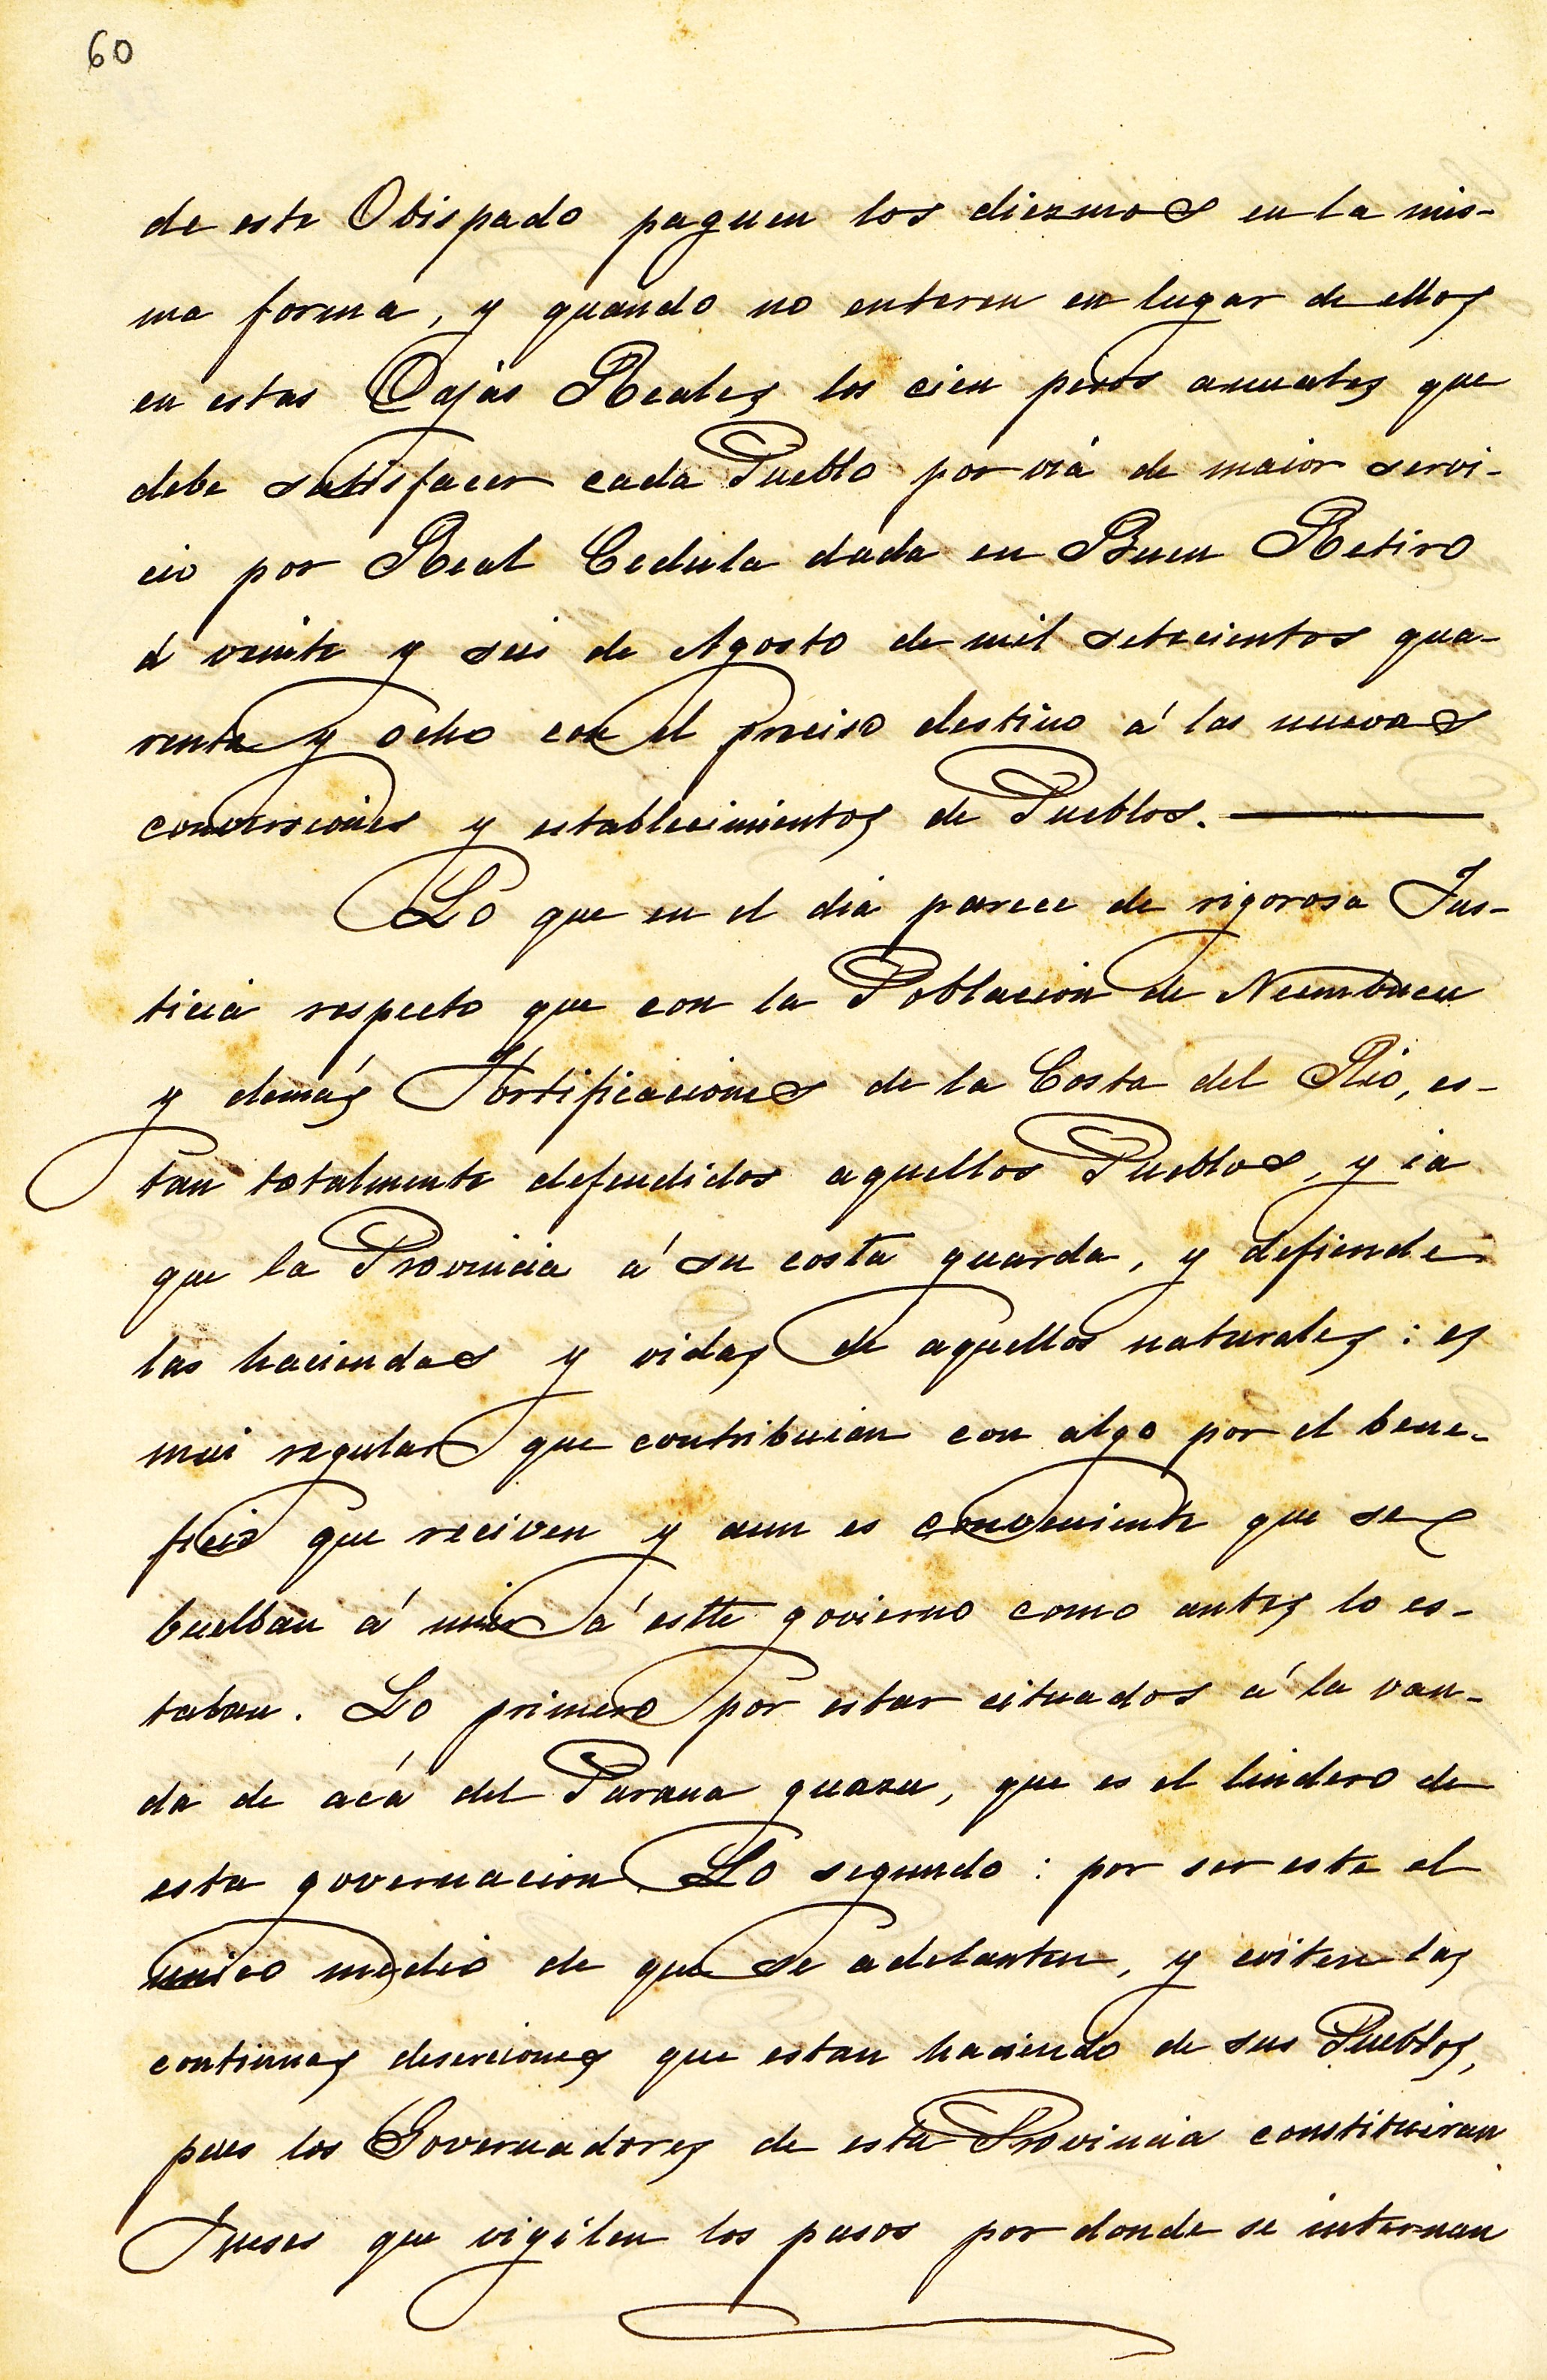 60
de este Obispado paguen los diezmos en la mis-
ma forma, y quando no enteren en lugar de ellos
en estas Cajas Reales los cien pesos anuales que
debe sattisfacer cada Pueblo por viá de maior servi-
cio por Real Cedula dada en Buen Retiro
á veinte y seis de Agosto de mil setecientos qua-
renta y ocho con el preciso destino á las nuevas
conversiones y establecimientos de Pueblos.
Lo que en el dia parece de rigorosa Jus-
ticia respecto que con la Poblacion de Neembucu
y demás Fortificaciones de la Costa del Rio, es-
tan totalmente defendidos aquellos Pueblos, y ia
que la Provincia á su costa guarda, y defiende
las haciendas y vidas de aquellos naturales: es
mui regular que contribuian con algo por el bene-
ficio que reciven y aun es conveniente que se
buelban á unir á estte govierno como antes lo es-
taban. Lo primero por estar cituados á la van-
da de acá del Parana guazu, que es el lindero de
esta governacion Lo segundo: por ser este el
unico medio de que se adelanten, y eviten las
continuas deserciones que estan haciendo de sus Pueblos,
pues los Governadores de esta Provincia constituiran
Jueses que vigilen los pasos por donde se internan